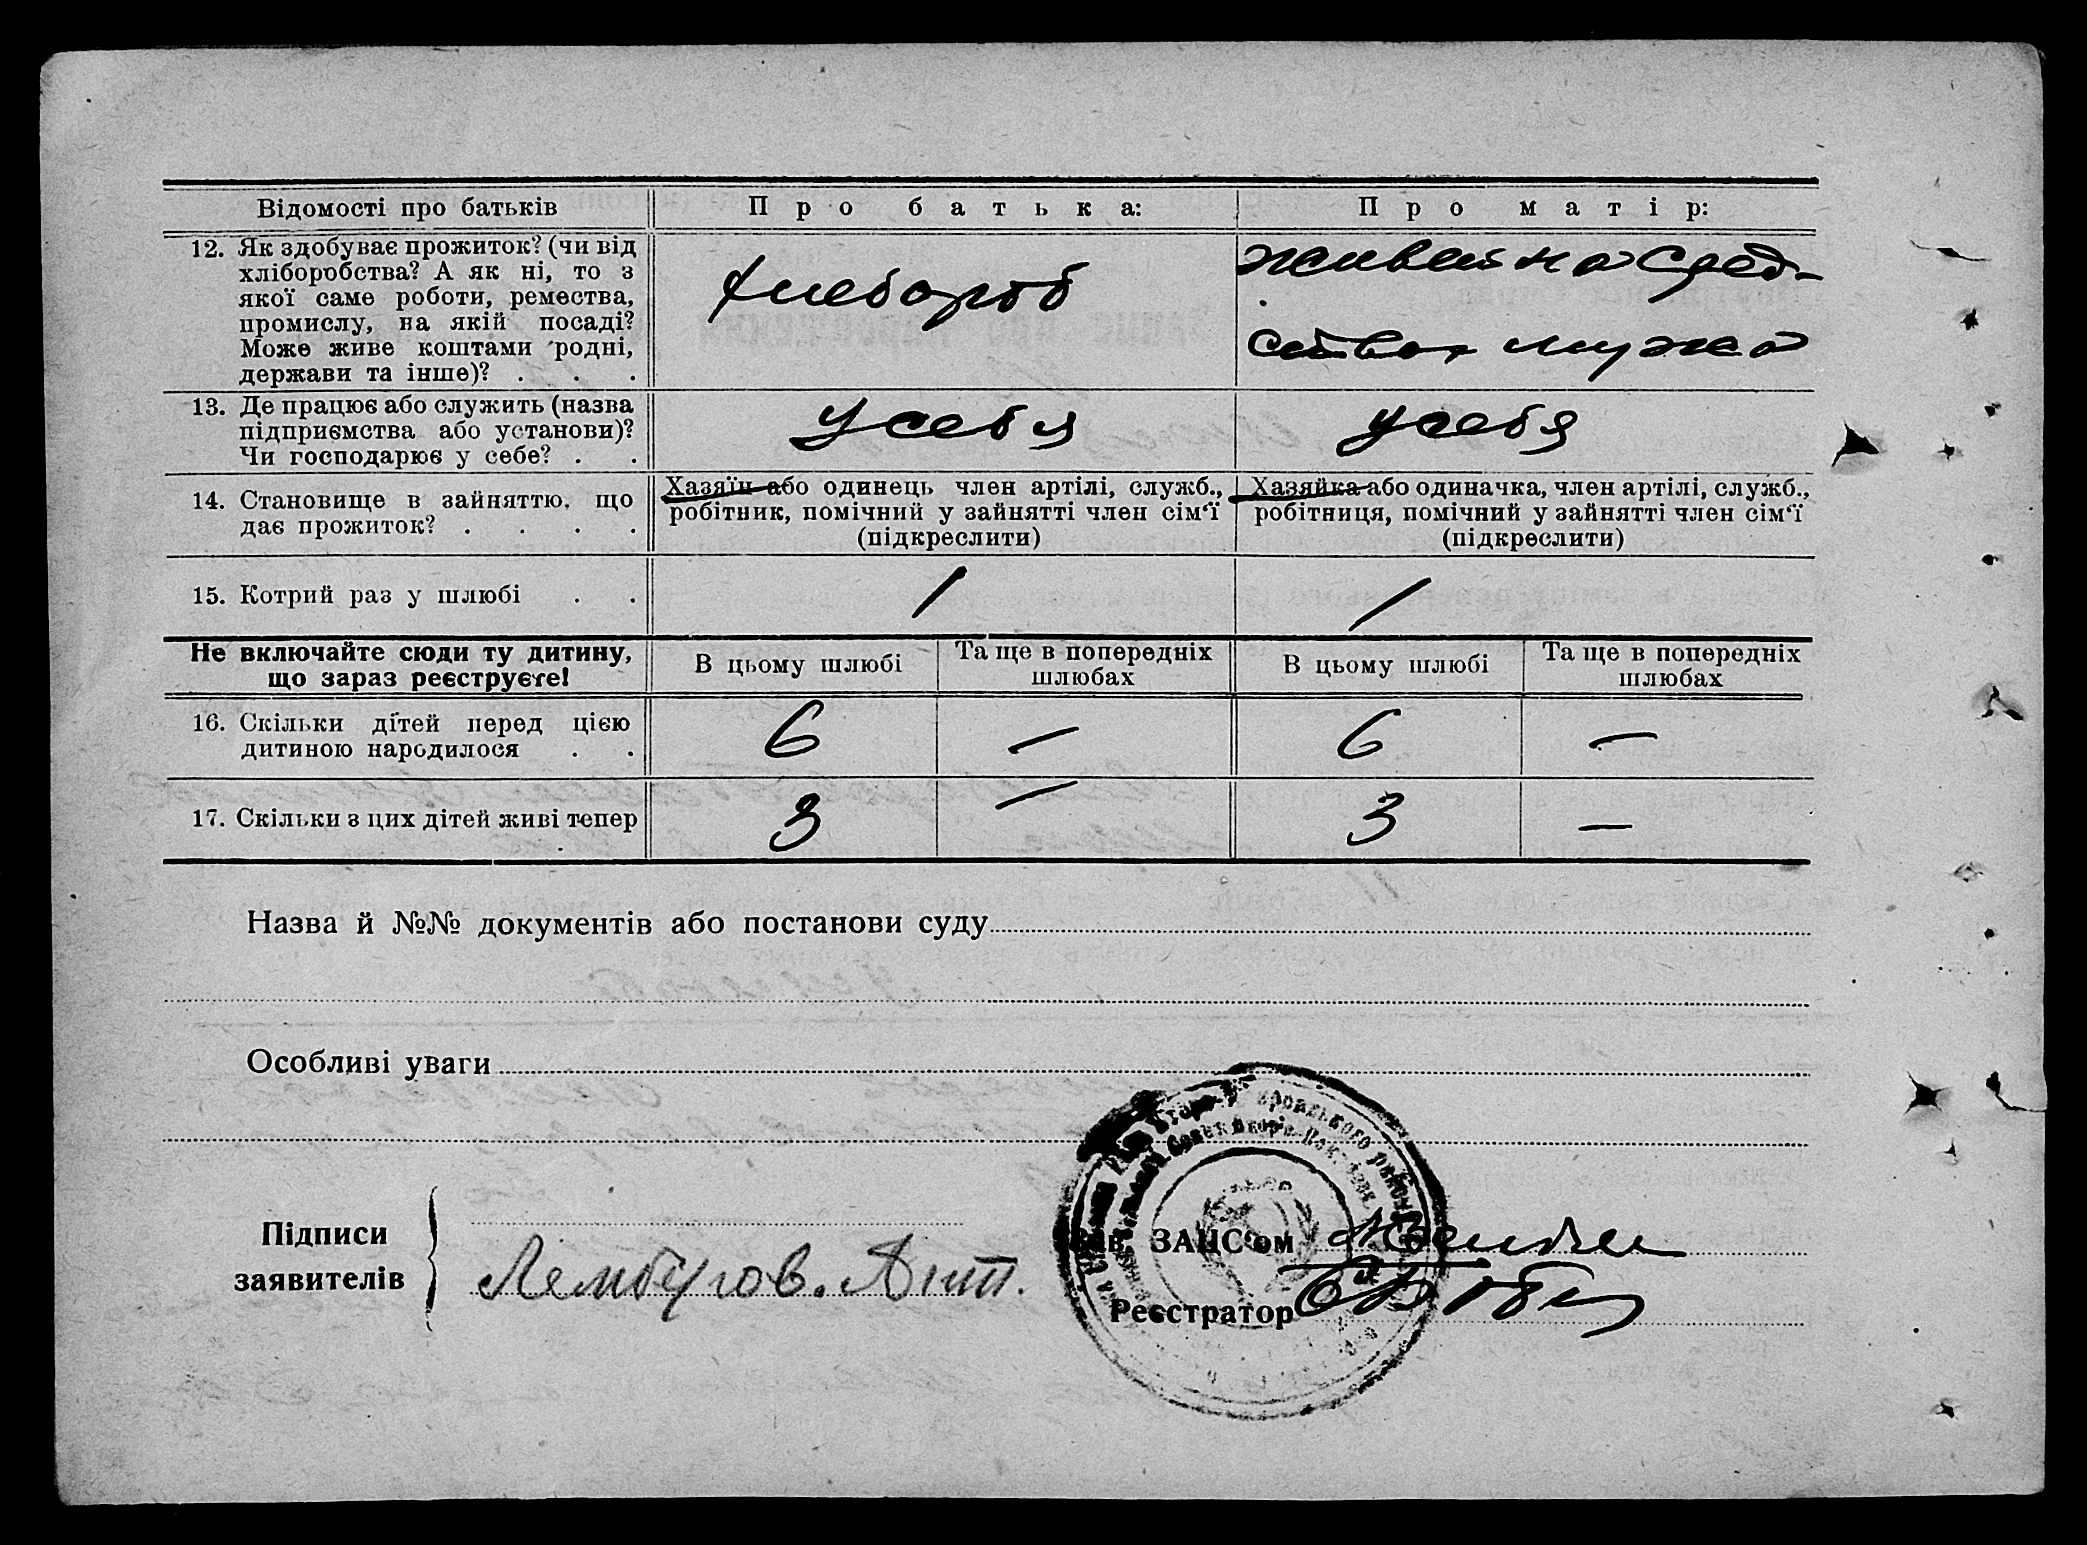 Відомості про батьків
Про батька:
Про матір:
12. Як здобуває прожиток? (чи від
хліборобства? А як ні, то з
якої саме роботи, ремества,
промислу, на якій посаді?
Може живе коштами родні,
держави та інше)? . . .
хлебороб
живет на сред-
ствах мужа
13. Де працює або служить (назва
підприємства або установи)?
Чи господарює у себе? . .
У себя
у себя
14. Становище в зайняттю, що
дає прожиток? . . . .
Хазяїн або одинець член артілі, служб.,
робітник, помічний у зайнятті член сім'ї
(підкреслити)
Хазяйка або одиначка, член артілі, служб.,
робітниця, помічний у зайнятті член сім'ї
(підкреслити)
15. Котрий раз у шлюбі . .
1
1
Не включайте сюди ту дитину,
що зараз реєструєте!
В цьому шлюбі
Та ще в попередніх
шлюбах
В цьому шлюбі
Та ще в попередніх
шлюбах
16. Скільки дітей перед цією
дитиною народилося . .
6
—
6
—
17. Скільки з цих дітей живі тепер
3
—
3
—
Назва й №№ документів або постанови суду
Особливі уваги
Підписи
заявителів
Лембугов. Ант.
Зав. ЗАГС'ом
Реєстратор